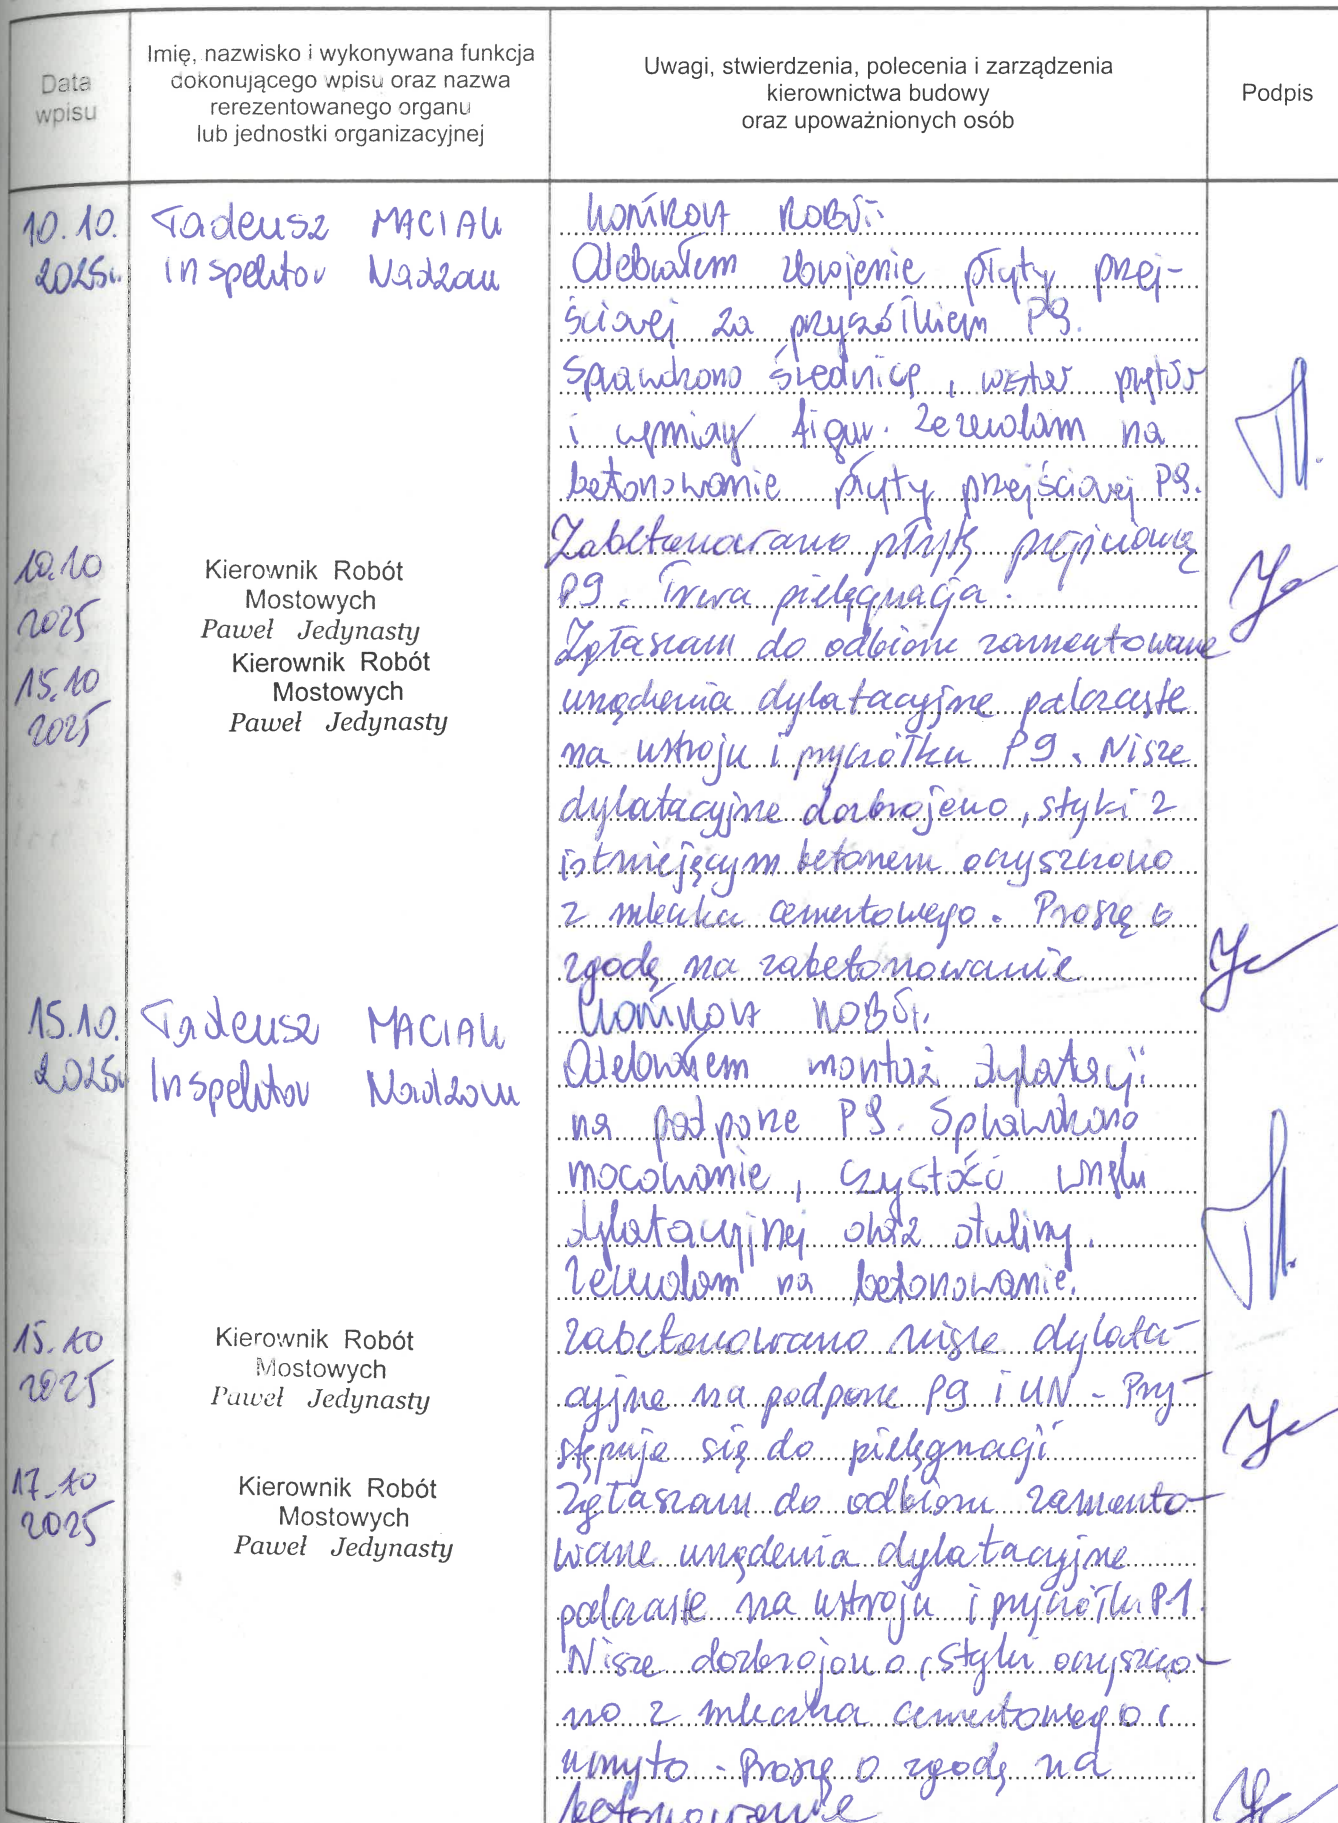 Data
wpisu
Imię, nazwisko i wykonywana funkcja
dokonującego wpisu oraz nazwa
rerezentowanego organu
lub jednostki organizacyjnej
Uwagi, stwierdzenia, polecenia i zarządzenia
kierownictwa budowy
oraz upoważnionych osób
Podpis
10.10.
2025r.
Tadeusz MACIAK
Inspektor Nadzoru
ROBÓT.
Odebrałem zbrojenie płyty przej-
ściowej za przyczółkiem P9.
Sprawdzono średnicę, prętów
i wymiary figur. Zezwalam na
betonowanie płyty przejściowej P9.
10.10
2025
Kierownik Robót
Mostowych
Paweł Jedynasty
Zabetonowano płytę przejściową
P9. Trwa pielęgnacja.
15.10
2025
Kierownik Robót
Mostowych
Paweł Jedynasty
Zgłaszam do odbioru zamontowane
urządzenia dylatacyjne palczaste
na ustroju i przyczółku P9. Nisze
dylatacyjne dozbrojono, styki z
istniejącym betonem oczyszczono
z mleczka cementowego. Proszę o
zgodę na zabetonowanie
15.10.
2025r
Tadeusz MACIAK
Inspektor Nadzoru
ROBÓT.
Odebrałem montaż dylatacji
na podporze P9. Sprawdzono
mocowanie, czystość wnęki
dylatacyjnej oraz otuliny.
Zezwalam na betonowanie.
15.10
2025
Kierownik Robót
Mostowych
Paweł Jedynasty
Zabetonowano nisze dylata-
cyjne na podporze P9 i UN - Przy-
stępuje się do pielęgnacji
17.10
2025
Kierownik Robót
Mostowych
Paweł Jedynasty
Zgłaszam do odbioru zamonto-
wane urządzenia dylatacyjne
palczaste na ustroju i przyczółku P1.
Nisze dozbrojono, styki oczyszczo-
no z mleczka cementowego i
umyto - Proszę o zgodę na
betonowanie